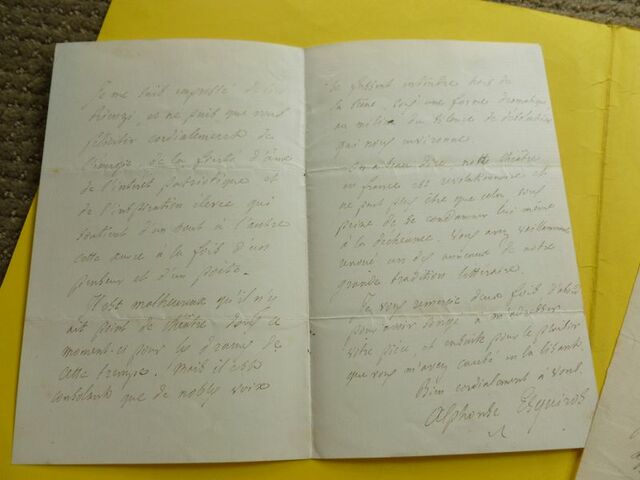 Je me suis empressé de lire
Rienzi, et ne puis que vous
féliciter cordialement de
l'énergie, de la fierté d'âme
de l'intérêt patriotique et
de l'inspiration élevée qui
soutient d'un bout à l'autre
cette œuvre à la fois d'un
penseur et d'un poète.
Il est malheureux qu'il n'y
ait point de théâtre dans ce
moment-ci pour les drames de
cette trempe. Mais il est
consolant que de nobles voix
se fassent entendre hors de
la scène, sous une forme dramatique,
au milieu du silence de
qui nous environne.
On a beau dire notre théâtre
en France est révolutionnaire et
ne peut plus être que cela sous
peine de se condamner lui même
à la déchéance. Vous avez vaillamment
renoué un des anneaux de notre
grande tradition littéraire.
Je vous remercie deux fois d'abord
pour avoir songé à m'adresser
votre pièce, et ensuite pour le plaisir
que vous m'avez causé en la lisant.
Bien cordialement à vous.
Alphonse Esquiros